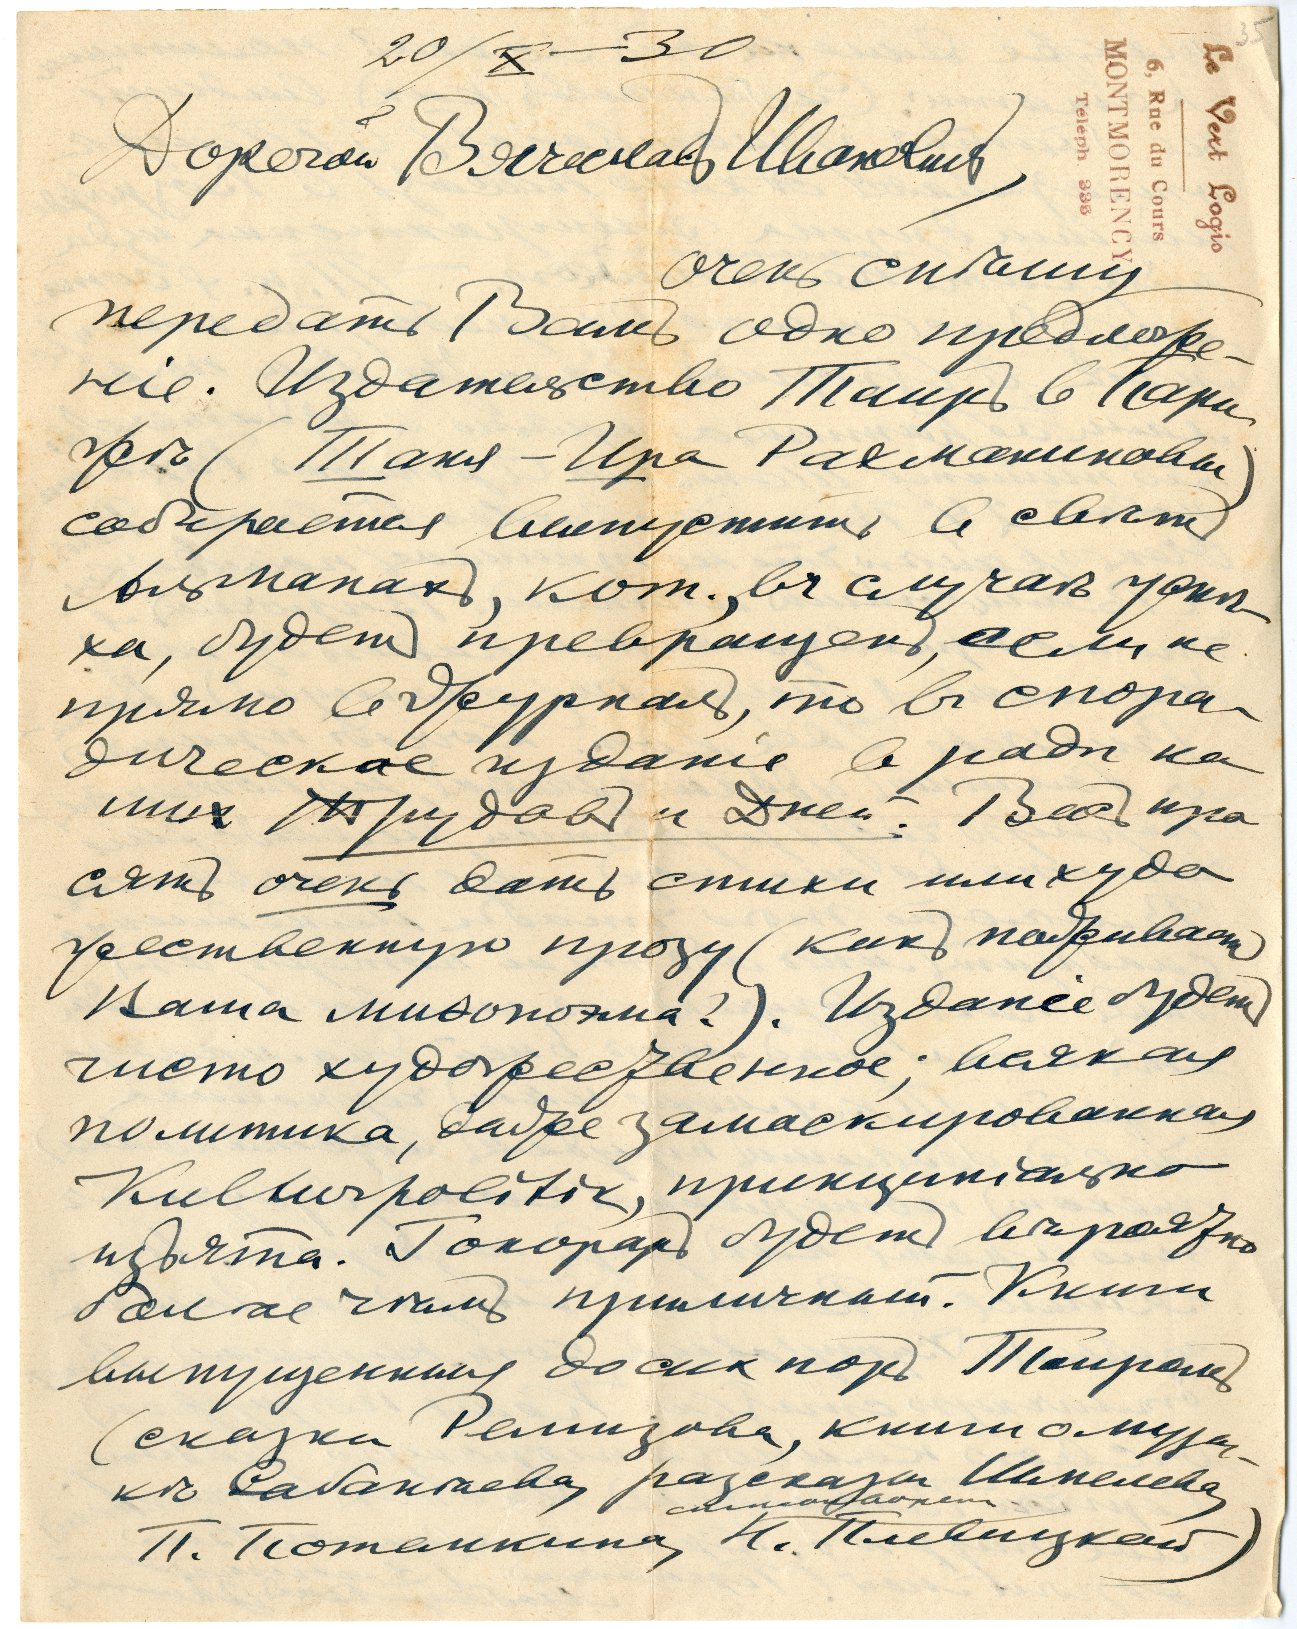 35
Le Vert Logis
6, Rue du Cours
MONTMORENCY
Téleph 335
20/X—30
Дорогой Вячеславъ Ивановичъ,
очень спѣшу
передать Вамъ одно предложе-
ніе. Издательство Таиръ в Пари
жѣ (Таня – Ира Рахманиновы)
собирается выпустить в свѣтъ
Альманахъ, кот., въ случаѣ успѣ-
ха, будетъ превращенъ, если не
прямо в журналъ, то въ спора-
дическое изданіе в родѣ на
ших Трудовъ и Дней. Васъ про
сятъ очень дать стихи или худо
жественную прозу (какъ поживаетъ
Ваша мифопоэма?). Изданіе будетъ
чисто художественное; всякая
политика, даже замаскированная
Kulturpolitik, принципіально
изъята. Гонораръ будетъ вѣроятно
болѣе чѣмъ приличный. Книги
выпущенныя до сих поръ Таиромъ
(сказки Ремизова, книги о музы-
кѣ Сабанѣева, разсказы Шмелева,
П. Потемкина, Н. Плевицкой)